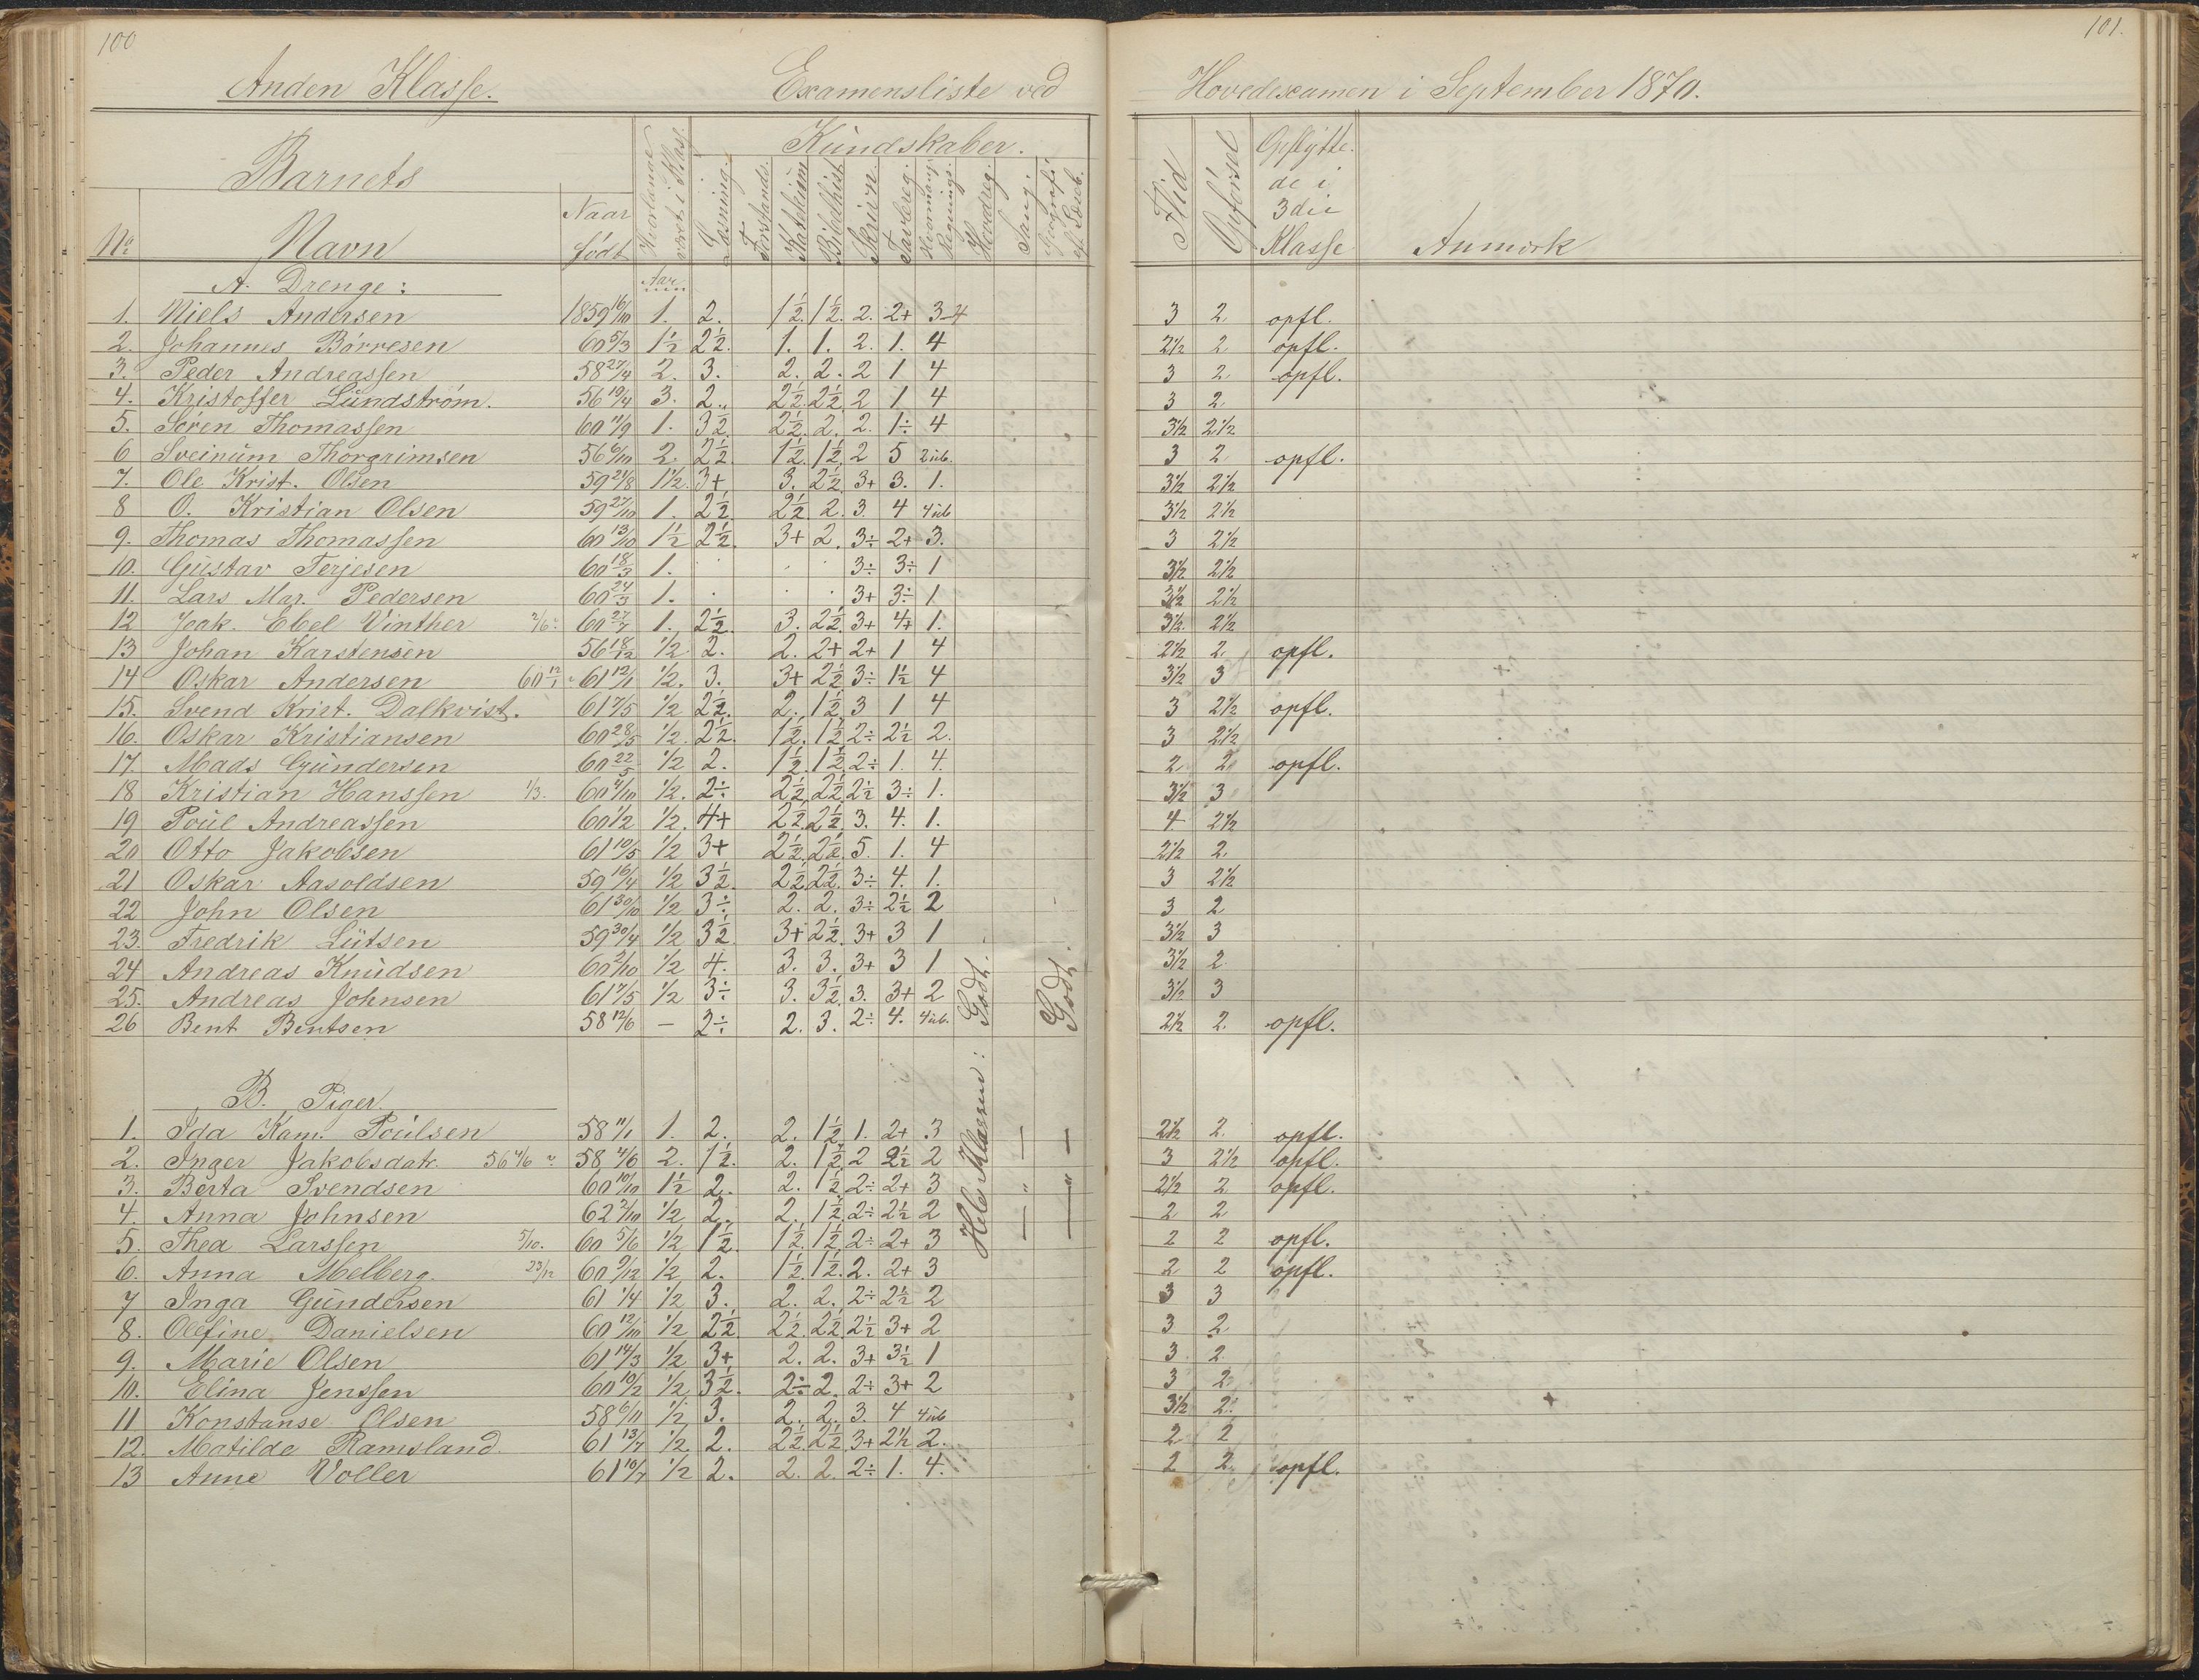 100
101.
Anden Klasse. Examensliste ved Hovedexamen i September 1870.
Barnets Kundskaber.
No Navn Naar født Hvorlænge været i Klas. Læsning. Forstands. Katekism Bibelhist. Skrivn. Tavlereg. Hvormang. Regnings. Hovedreg. Sang. Geografi ef. Læseb. Flid Opførsel Opflyttede i 3die Klasse Anmærk
A. Drenge: Aar
1. Niels Andersen 1859 16/10 1. 2. 1½. 1½. 2. 2+ 3-4 3 2 opfl.
2. Johannes Börresen 60 5/3 1½ 2½. 1. 1. 2. 1. 4 2½ 2 opfl.
3. Peder Andreassen 58 27/4 2. 3. 2. 2. 2 1 4 3 2 opfl.
4. Kristoffer Lündström. 56 19/4 3. 2. 2½. 2½ 2 1 4 3 2
5. Sören Thomassen 60 11/9 1. 3½ 2½. 2. 2. 1÷ 4 3½ 2½
6 Sveinüm Thorgrimsen 56 6/10 2. 2½. 1½. 1½ 2 5 2 üb. 3 2 opfl.
7. Ole Krist. Olsen 59 21/8 1½. 3+ 3. 2½ 3+ 3. 1. 3½ 2½
8 O. Kristian Olsen 59 27/10 1. 2½ 2½. 2. 3. 4 4 üb 3½ 2½
9. Thomas Thomassen 60 13/10 1½ 2½. 3+ 2. 3÷ 2+ 3. 3 2½
10. Güstav Terjesen 60 18/3 1. 3÷ 3÷ 1 3½ 2½
11. Lars Mar. Pedersen 60 24/3 1. 3+ 3÷ 1 3½ 2½
12 Joak. Ebel Vinther 2/6 60 27/7 1. 2½. 3. 2½ 3+ 4+ 1. 3½. 2½
13 Johan Karstensen 56 18/12 ½ 2. 2. 2+ 2+ 1 4 2½ 2 opfl.
14 Oskar Andersen 60 12/1 61 12/1 ½. 3. 3+ 2½ 3÷ 1½ 4 3½ 3
15. Svend Krist. Dalkvist. 61 7/5 ½ 2½. 2. 1½ 3 1 4 3 2½ opfl.
16. Oskar Kristiansen 60 28/5 ½. 2½. 1½. 1½ 2÷ 2½ 2. 3 2½
17. Mads Gündersen 60 22/5 ½ 2. 1½. 1½. 2÷ 1. 4. 2 2 opfl.
18 Kristian Hanssen 1/3. 60 4/10 ½. 2÷ 2½ 2½ 2½ 3÷ 1. 3½ 3
19 Poül Andreassen 60 1/2 ½. 4+ 2½. 2½. 3. 4. 1. 4 2½
20 Otto Jakobsen 61 10/5 ½ 3+ 2½. 2½. 5. 1. 4 2½ 2.
21 Oskar Aasoldsen 59 16/4 ½ 3½. 2½ 2½. 3÷ 4. 1. 3 2½
22 John Olsen 61 30/10 ½ 3÷ 2. 2. 3÷ 2½ 2 3 2
23. Fredrik Lütsen 59 30/4 ½ 3½. 3+ 2½. 3+ 3 1 3½ 3
24 Andreas Knüdsen 60 2/10 ½ 4. 3. 3. 3+ 3 1 3½ 2
25. Andreas Johnsen 61 7/5 ½ 3÷ 3. 3½. 3. 3+ 2 3½ 3
26 Bent Bentsen 58 12/6 — 2÷ 2. 3. 2÷ 4. 4 üb. 2½ 2. opfl.
Hele Klassen: Godt.
Godt.
B. Piger.
1. Ida Kam. Poülsen 58 11/1 1. 2. 2. 1½ 1. 2+ 3 2½ 2. opfl.
2. Inger Jakobsdatr. 56 4/6 58 4/6 2. 1½. 2. 1½ 2 2½ 2 3 2½ opfl.
3. Berta Svendsen 60 10/10 1½ 2. 2. 1½ 2÷ 2+ 3 2½ 2 opfl.
4. Anna Johnsen 62 2/10 ½ 2. 2. 1½. 2÷ 2½ 2 2 2
5. Thea Larssen 5/10. 60 5/6 ½ 1½. 1½. 1½. 2÷ 2+ 3 2 2 opfl.
6. Anna Melberg. 23/12 60 9/12 ½ 2. 1½. 1½. 2. 2+ 3 2 2 opfl.
7 Inga Gündersen 61 1/4 ½ 3. 2. 2. 2÷ 2½ 2 3 3
8. Olefine Danielsen 60 12/10 ½ 2½ 2½. 2½. 2½ 3+ 2 3 2
9. Marie Olsen 61 14/3 ½ 3+ 2. 2. 3+ 3½ 1 3 2
10. Elina Jenssen 60 10/2 ½ 3½. 2÷ 2. 2÷ 3+ 2 3 2
11 Konstanse Olsen 58 6/11 ½ 3. 2. 2. 3. 4 4 üb 3½ 2
12. Matilde Ramsland. 61 13/7 ½ 2. 2½. 2½. 3+ 2½ 2. 2 2
13 Anne Voller 61 10/7 ½ 2. 2. 2. 2÷ 1. 4. 2 2 opfl.